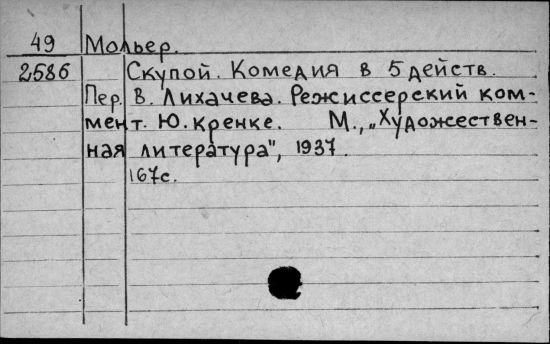 49 Мольер.
2586 Скупой. Комедия в 5 действ.
Пер. В. Лихачева. Режиссерский ком-
мент. Ю. Кренке. М., „Художествен-
ная литература", 1937.
167с.